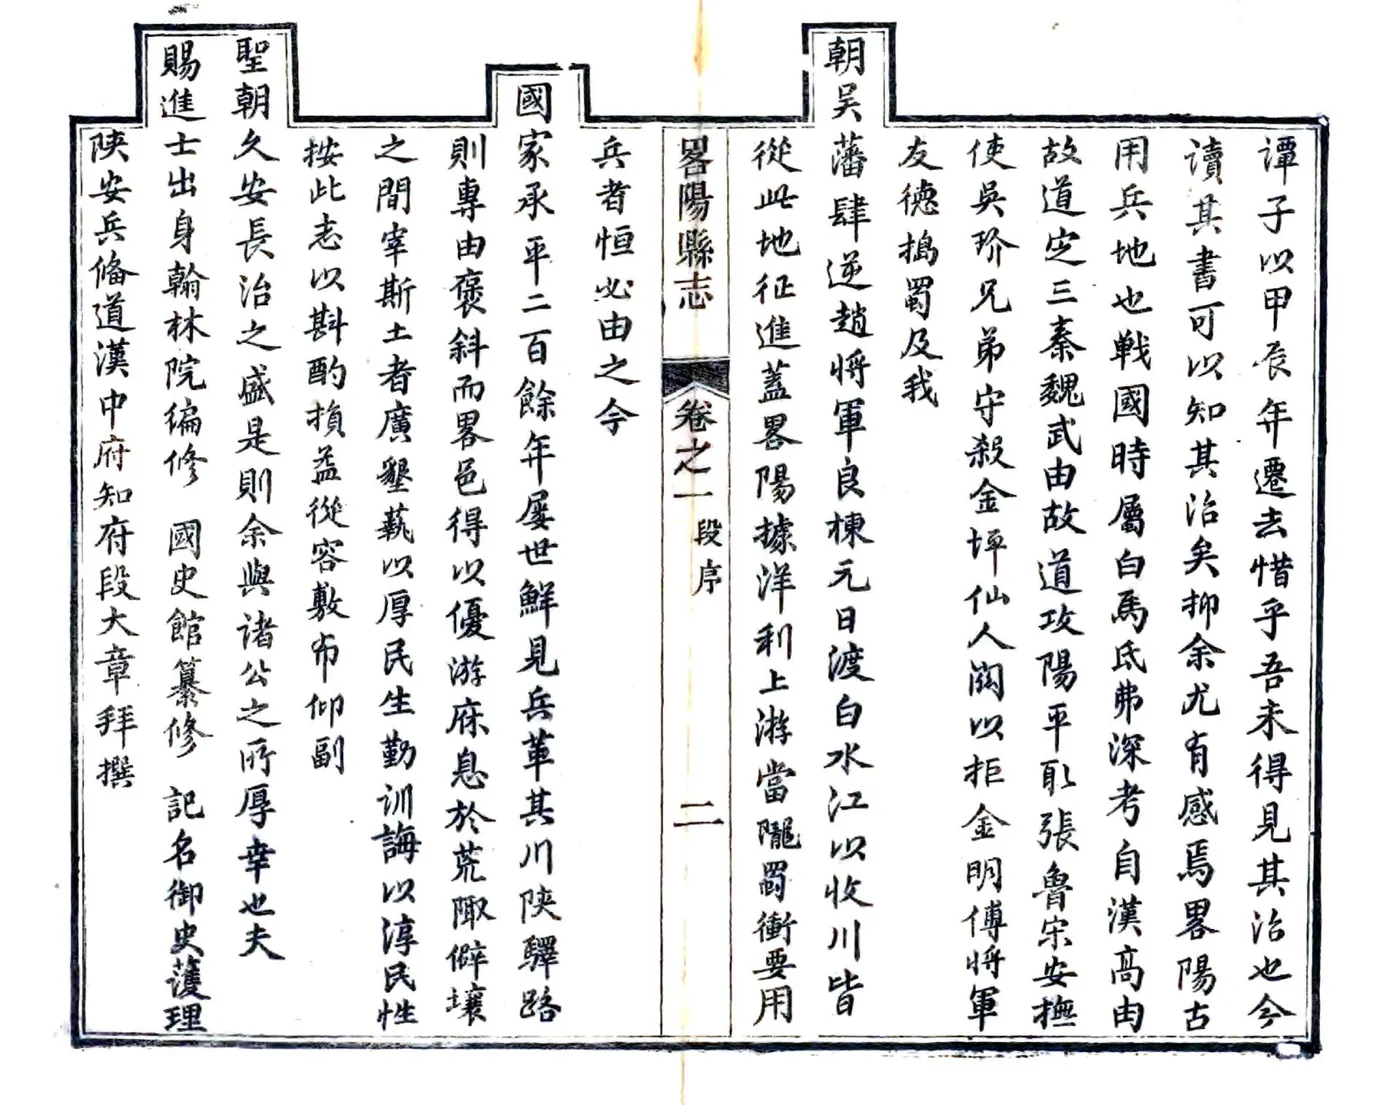 譚子以甲辰年遷去惜乎吾未得見其治也今
讀其書可以知其治矣抑余尤有感焉畧陽古
用兵地也戰國時屬白馬氐弗深考自漢高由
故道定三秦魏武由故道攻陽平取張魯宋安撫
使吳玠兄弟守殺金坪仙人關以拒金明傅將軍
友德搗蜀及我
朝吴藩肆逆趙將軍良棟元日渡白水江以收川皆
從此地征進蓋畧陽據洋利上游當隴蜀衝要用
畧陽縣志 卷之一 段序 二
兵者恒必由之今
國家承平二百餘年屢世鮮見兵革其川陝驛路
則專由褒斜而畧邑得以優游庥息於荒陬僻壤
之間宰斯土者廣墾蓺以厚民生勤訓誨以淳民性
按此志以斟酌損益從容敷布仰副
聖朝久安長治之盛是則余與諸公之所厚幸也夫
賜進士出身翰林院編修 國史館纂修 記名御史護理
陝安兵備道漢中府知府段大章拜撰